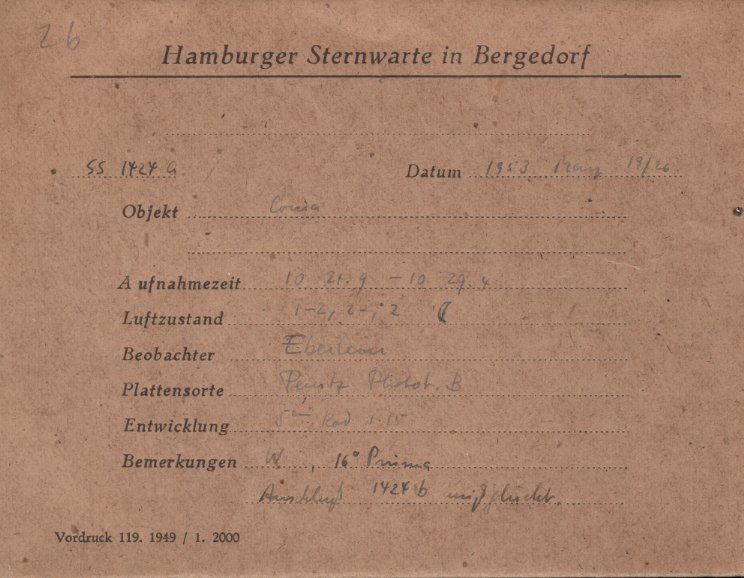 26
Hamburger Sternwarte in Bergedorf
SS 1424 a Datum 1953 März 19/20
Objekt Coma
Aufnahmezeit 10 21.9 – 10 29.4
Luftzustand 1–2, 2–, 2
Beobachter
Plattensorte Perutz B
Entwicklung 5 m Rod 1:15
Bemerkungen W, 16° Prisma
Anschluß 1424 b mißglückt.
Vordruck 119. 1949 / 1. 2000